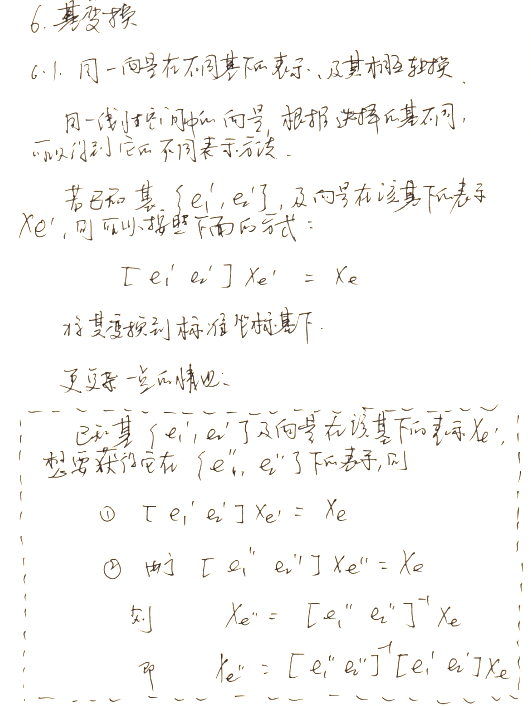 6. 基变换
6.1. 同一向量在不同基下的表示、及其相互转换
同一线性空间中的向量, 根据选择的基不同,
可以得到它的不同表示方法.
若已知基 {e₁', e₂'}, 及向量在该基下的表示
Xe', 则可以按照下面的方式:
[ e₁' e₂' ] Xe' = Xe
将其变换到标准坐标基下.
更复杂一点的情况:
已知基 {e₁', e₂'} 及向量在该基下的表示 Xe',
想要获得它在 {e₁'', e₂''} 下的表示, 则
① [ e₁' e₂' ] Xe' = Xe
② 由于 [ e₁'' e₂'' ] Xe'' = Xe
则 Xe'' = [ e₁'' e₂'' ]⁻¹ Xe
即 Xe'' = [ e₁'' e₂'' ]⁻¹ [ e₁' e₂' ] Xe'